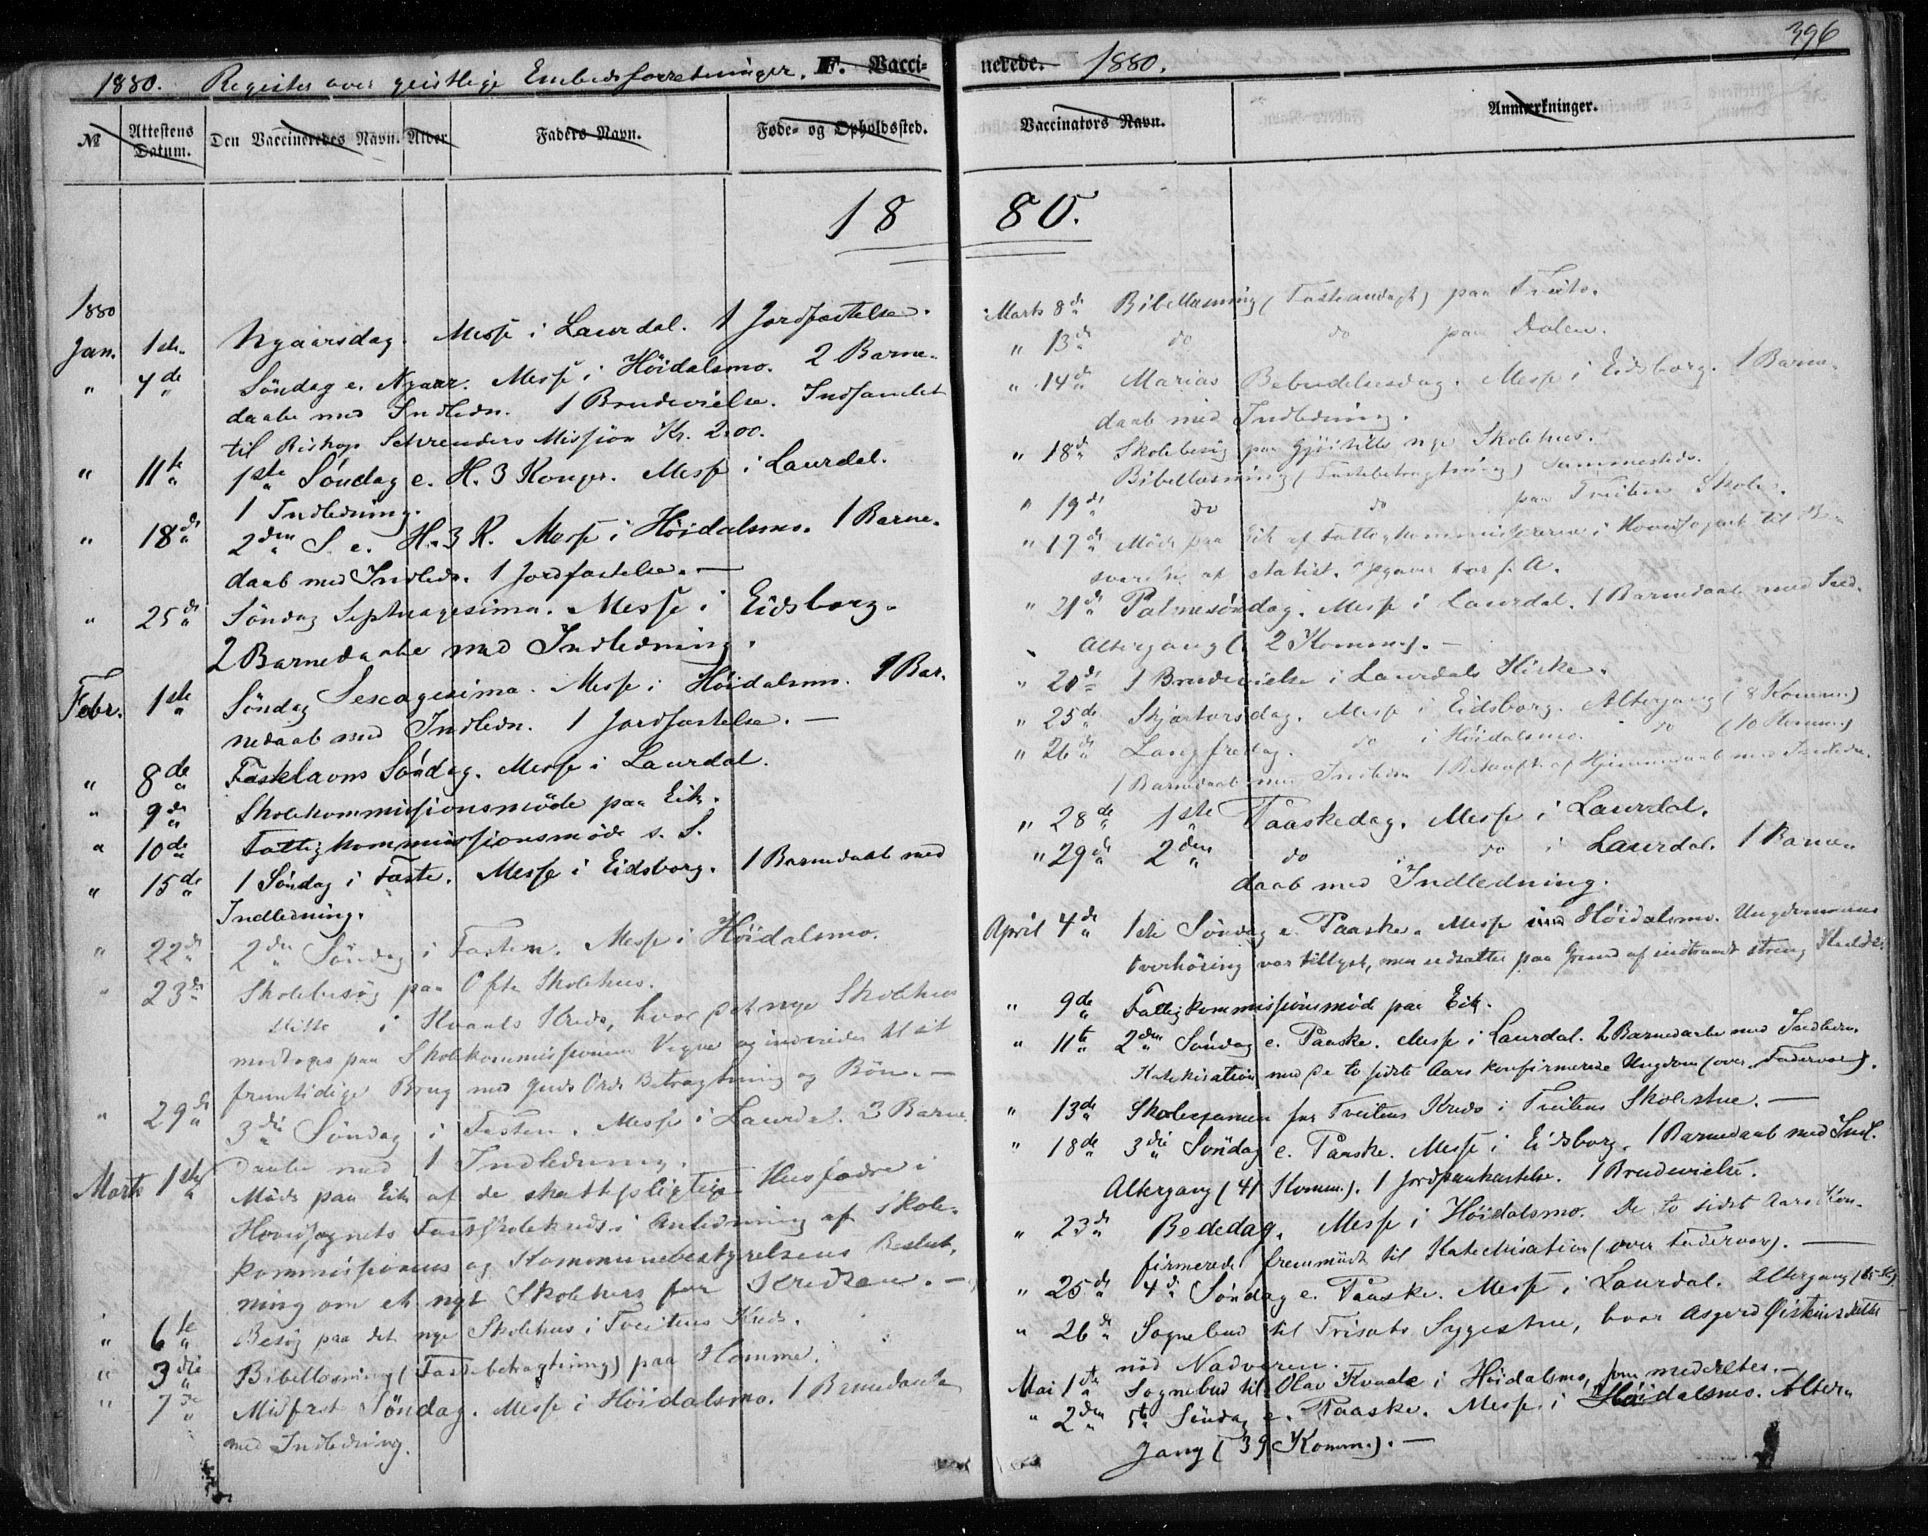 396
1880. Register over geistlige Embedsforretninger. F. Vacci-
№ Attestens Datum. Den Vaccineredes Navn. Alder Faders Navn. Føde- og Opholdssted.
18
1880
Jan. 1ste Nyaarsdag. Messe i Laurdal. 1 Jordfæstelse.
" 4de Söndag e. Nyaar. Messe i Höidalsmo. 2 Barne-
daabe med Indledn. 1 Brudevielse. Indsamlet
til Biskop Schreuders Mission Kr. 2.00.
" 11te 1ste Söndag e. H. 3 Konger. Messe i Laurdal.
1 Indledning.
" 18de 2den S. e. H. 3 K. Messe i Höidalsmo. 1 Barne-
daab med Indledn. 1 Jordfæstelse. —
" 25de Söndag Septuagesima. Messe i Eidsborg.
2 Barnedaabe med Indledning.
Febr. 1ste Söndag Sexagesima. Messe i Höidalsmo. 1 Bar-
nedaab med Indledn. 1 Jordfæstelse. —
" 8de Fastelavns Söndag. Messe i Laurdal.
" 9de Skolekommissionsmöde paa Eik.
" 10de Fattigkommissionsmöde s. S.
" 15de 1 Söndag i Faste. Messe i Eidsborg. 1 Barnedaab med
Indledning.
" 22de 2den Söndag i Fasten. Messe i Höidalsmo.
" 23de Skolebesög paa Ofte Skolehus.
Ditto i Kvaals Kreds, hvor det nye Skolehus
modtages paa Skolekommissionens Vegne og indvies til sit
fremtidige Brug med Guds Ords Betragtning og Bön. —
" 29de 3die Söndag i Fasten. Messe i Laurdal. 3 Barne-
daabe med 1 Indledning.
Marts 1ste Möde paa Eik af de skattepligtige Husfædre i
Hovedsognets Fastskolekreds i Anledning af Skole-
kommissionens og Kommunebestyrelsens Beslut-
ning om et nyt Skolehus for Kredsen. —
" 6te Besög paa det nye Skolehus i Tveitens Kreds.
" 3die Bibellæsning (Fastebetragtning) paa Homme.
" 7de Midfaste Söndag. Messe i Höidalsmo. 1 Barnedaab
med Indledning.
nerede. 1880.
Vaccinators Navn. Anmærkninger.
80.
Marts 8de Bibellæsning (Fasteandagt) paa
" 13de do do paa Dalen.
" 14de Marias Bebudelsesdag. Messe i Eidsborg. 1 Barne-
daab med Indledning.
" 18de Skolebesög paa nye Skolehus.
Bibellæsning (Fastebetragtning) sammesteds.
" 19de do do paa Tveiten Skole.
" 17de Möde paa Eik af Fattigkommissionen i Hovedsognet til Be-
svarelse af statist. Opgaver
" 21de Palmesöndag. Messe i Laurdal. 1 Barnedaab med Indl.
Altergang ( 2 Komm.). —
" 20de 1 Brudevielse i Laurdals Kirke.
" 25de Skjærtorsdag. Messe i Eidsborg. Altergang (8 Komm.)
" 26de Langfredag. do i Höidalsmo. do (10 Komm.)
1 Barnedaab med Indledn. 1 af Hjemmedaab med Indledn.
" 28de 1ste Paaskedag. Messe i Laurdal.
" 29de 2den do do i Laurdal. 1 Barne-
daab med Indledning.
April 4de 1ste Söndag e. Paaske. Messe i Höidalsmo. Ungdommens
Overhöring var tillyst, men udsattes paa Grund af indtraadt streng Kulde.
" 9de Fattigkommissionsmöde paa Eik.
" 11te 2den Söndag e. Paaske. Messe i Laurdal. 2 Barnedaabe med Indledn.
Katekisation med de to sidste Aars konfirmerede Ungdom (over Fadervor).
" 13de Skoleexamen for Tveitens Kreds i Tveitens Skolestue. —
" 18de 3die Söndag e. Paaske. Messe i Eidsborg. 1 Barnedaab med Indl.
Altergang (41 Komm.). 1 Jordpaakastelse. 1 Brudevielse.
" 23de Bededag. Messe i Höidalsmo. De to sidste Aars Kon-
firmerede fremmödt til Katechisation (over Fadervor). —
" 25de 4de Söndag e. Paaske. Messe i Laurdal. Altergang
" 26de Sognebud til Trisæts Sygestue, hvor Asgerd Øisteinsdatter
nöd Nadveren.
Mai 1ste Sognebud til Olav Kvaale i Höidalsmo, som meddeltes. —
" 2den 5te Söndag e. Paaske. Messe i Höidalsmo. Alter-
gang (39 Komm.). —